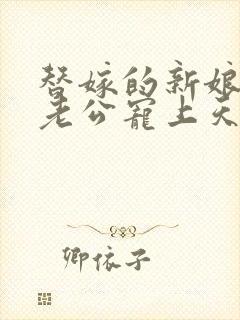 替嫁的新娘
老公宠上天
卿依子